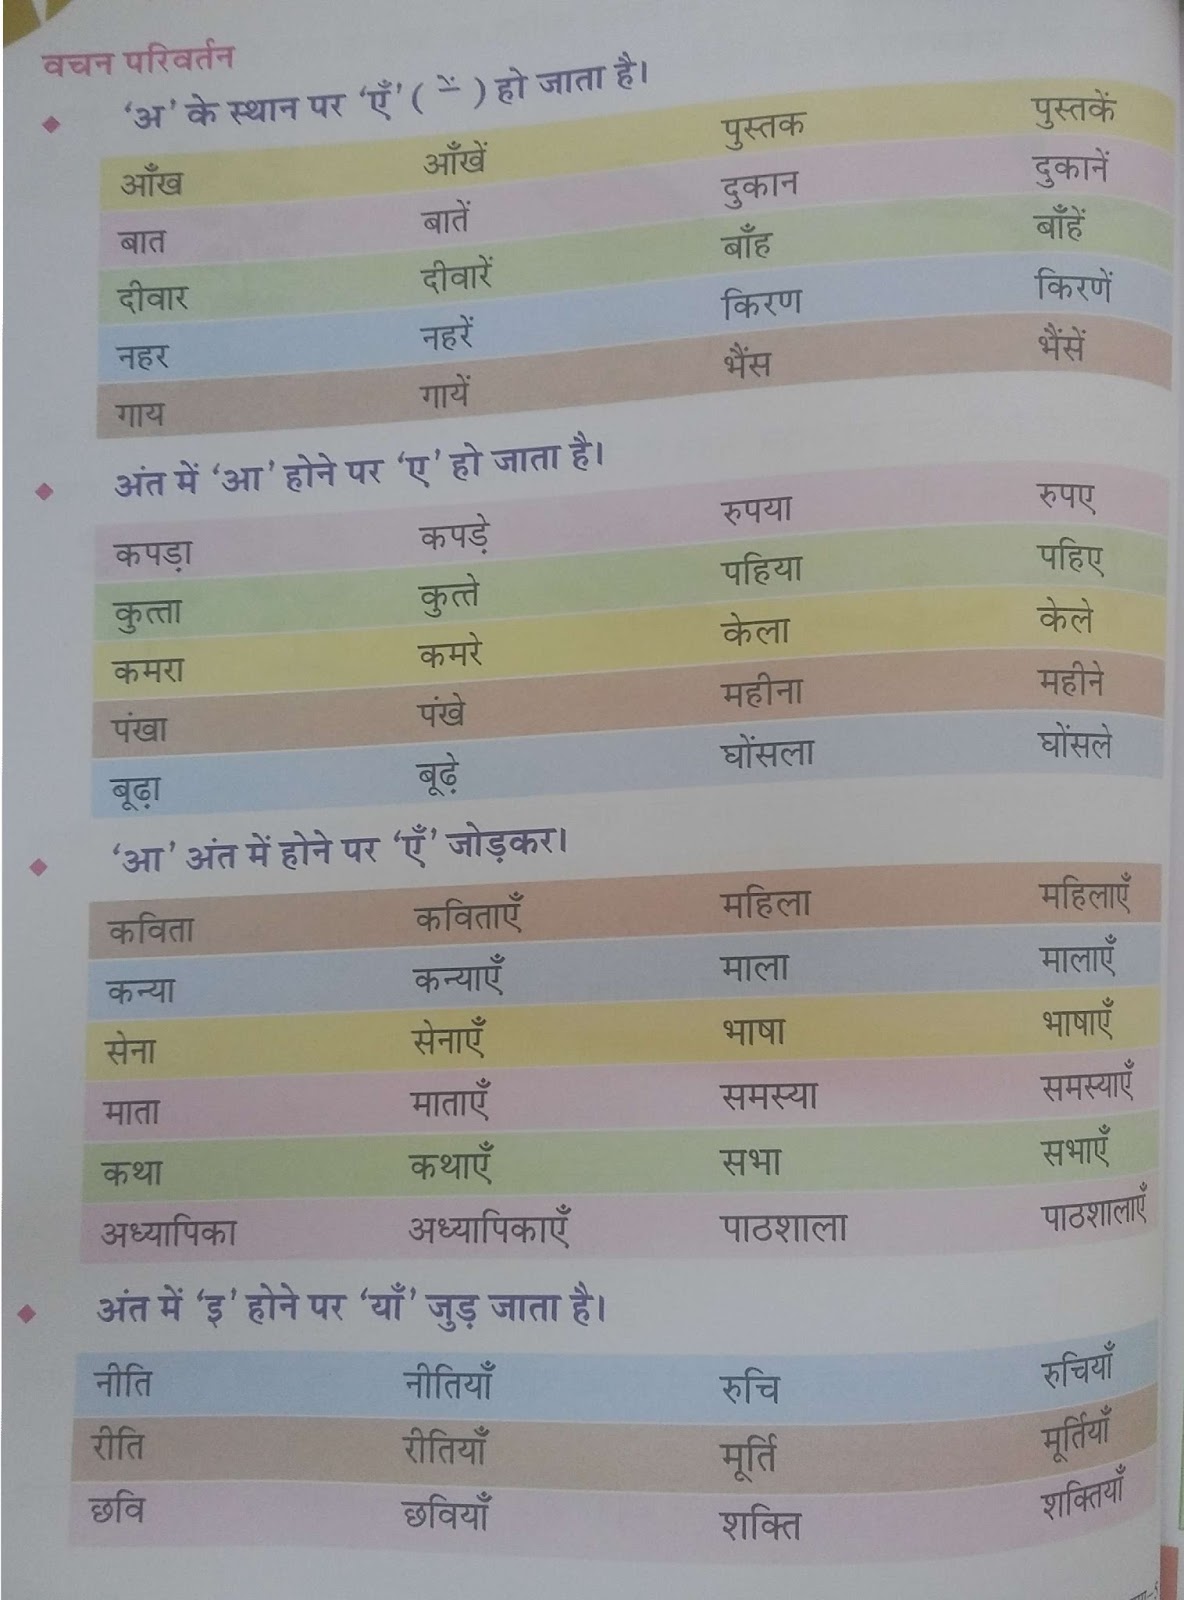 वचन परिवर्तन
'अ' के स्थान पर 'एँ' ( ें ) हो जाता है।
आँख आँखें पुस्तक पुस्तकें
बात बातें दुकान दुकानें
दीवार दीवारें बाँह बाँहें
नहर नहरें किरण किरणें
गाय गायें भैंस भैंसें
अंत में 'आ' होने पर 'ए' हो जाता है।
कपड़ा कपड़े रुपया रुपए
कुत्ता कुत्ते पहिया पहिए
कमरा कमरे केला केले
पंखा पंखे महीना महीने
बूढ़ा बूढ़े घोंसला घोंसले
'आ' अंत में होने पर 'एँ' जोड़कर।
कविता कविताएँ महिला महिलाएँ
कन्या कन्याएँ माला मालाएँ
सेना सेनाएँ भाषा भाषाएँ
माता माताएँ समस्या समस्याएँ
कथा कथाएँ सभा सभाएँ
अध्यापिका अध्यापिकाएँ पाठशाला पाठशालाएँ
अंत में 'इ' होने पर 'याँ' जुड़ जाता है।
नीति नीतियाँ रुचि रुचियाँ
रीति रीतियाँ मूर्ति मूर्तियाँ
छवि छवियाँ शक्ति शक्तियाँ